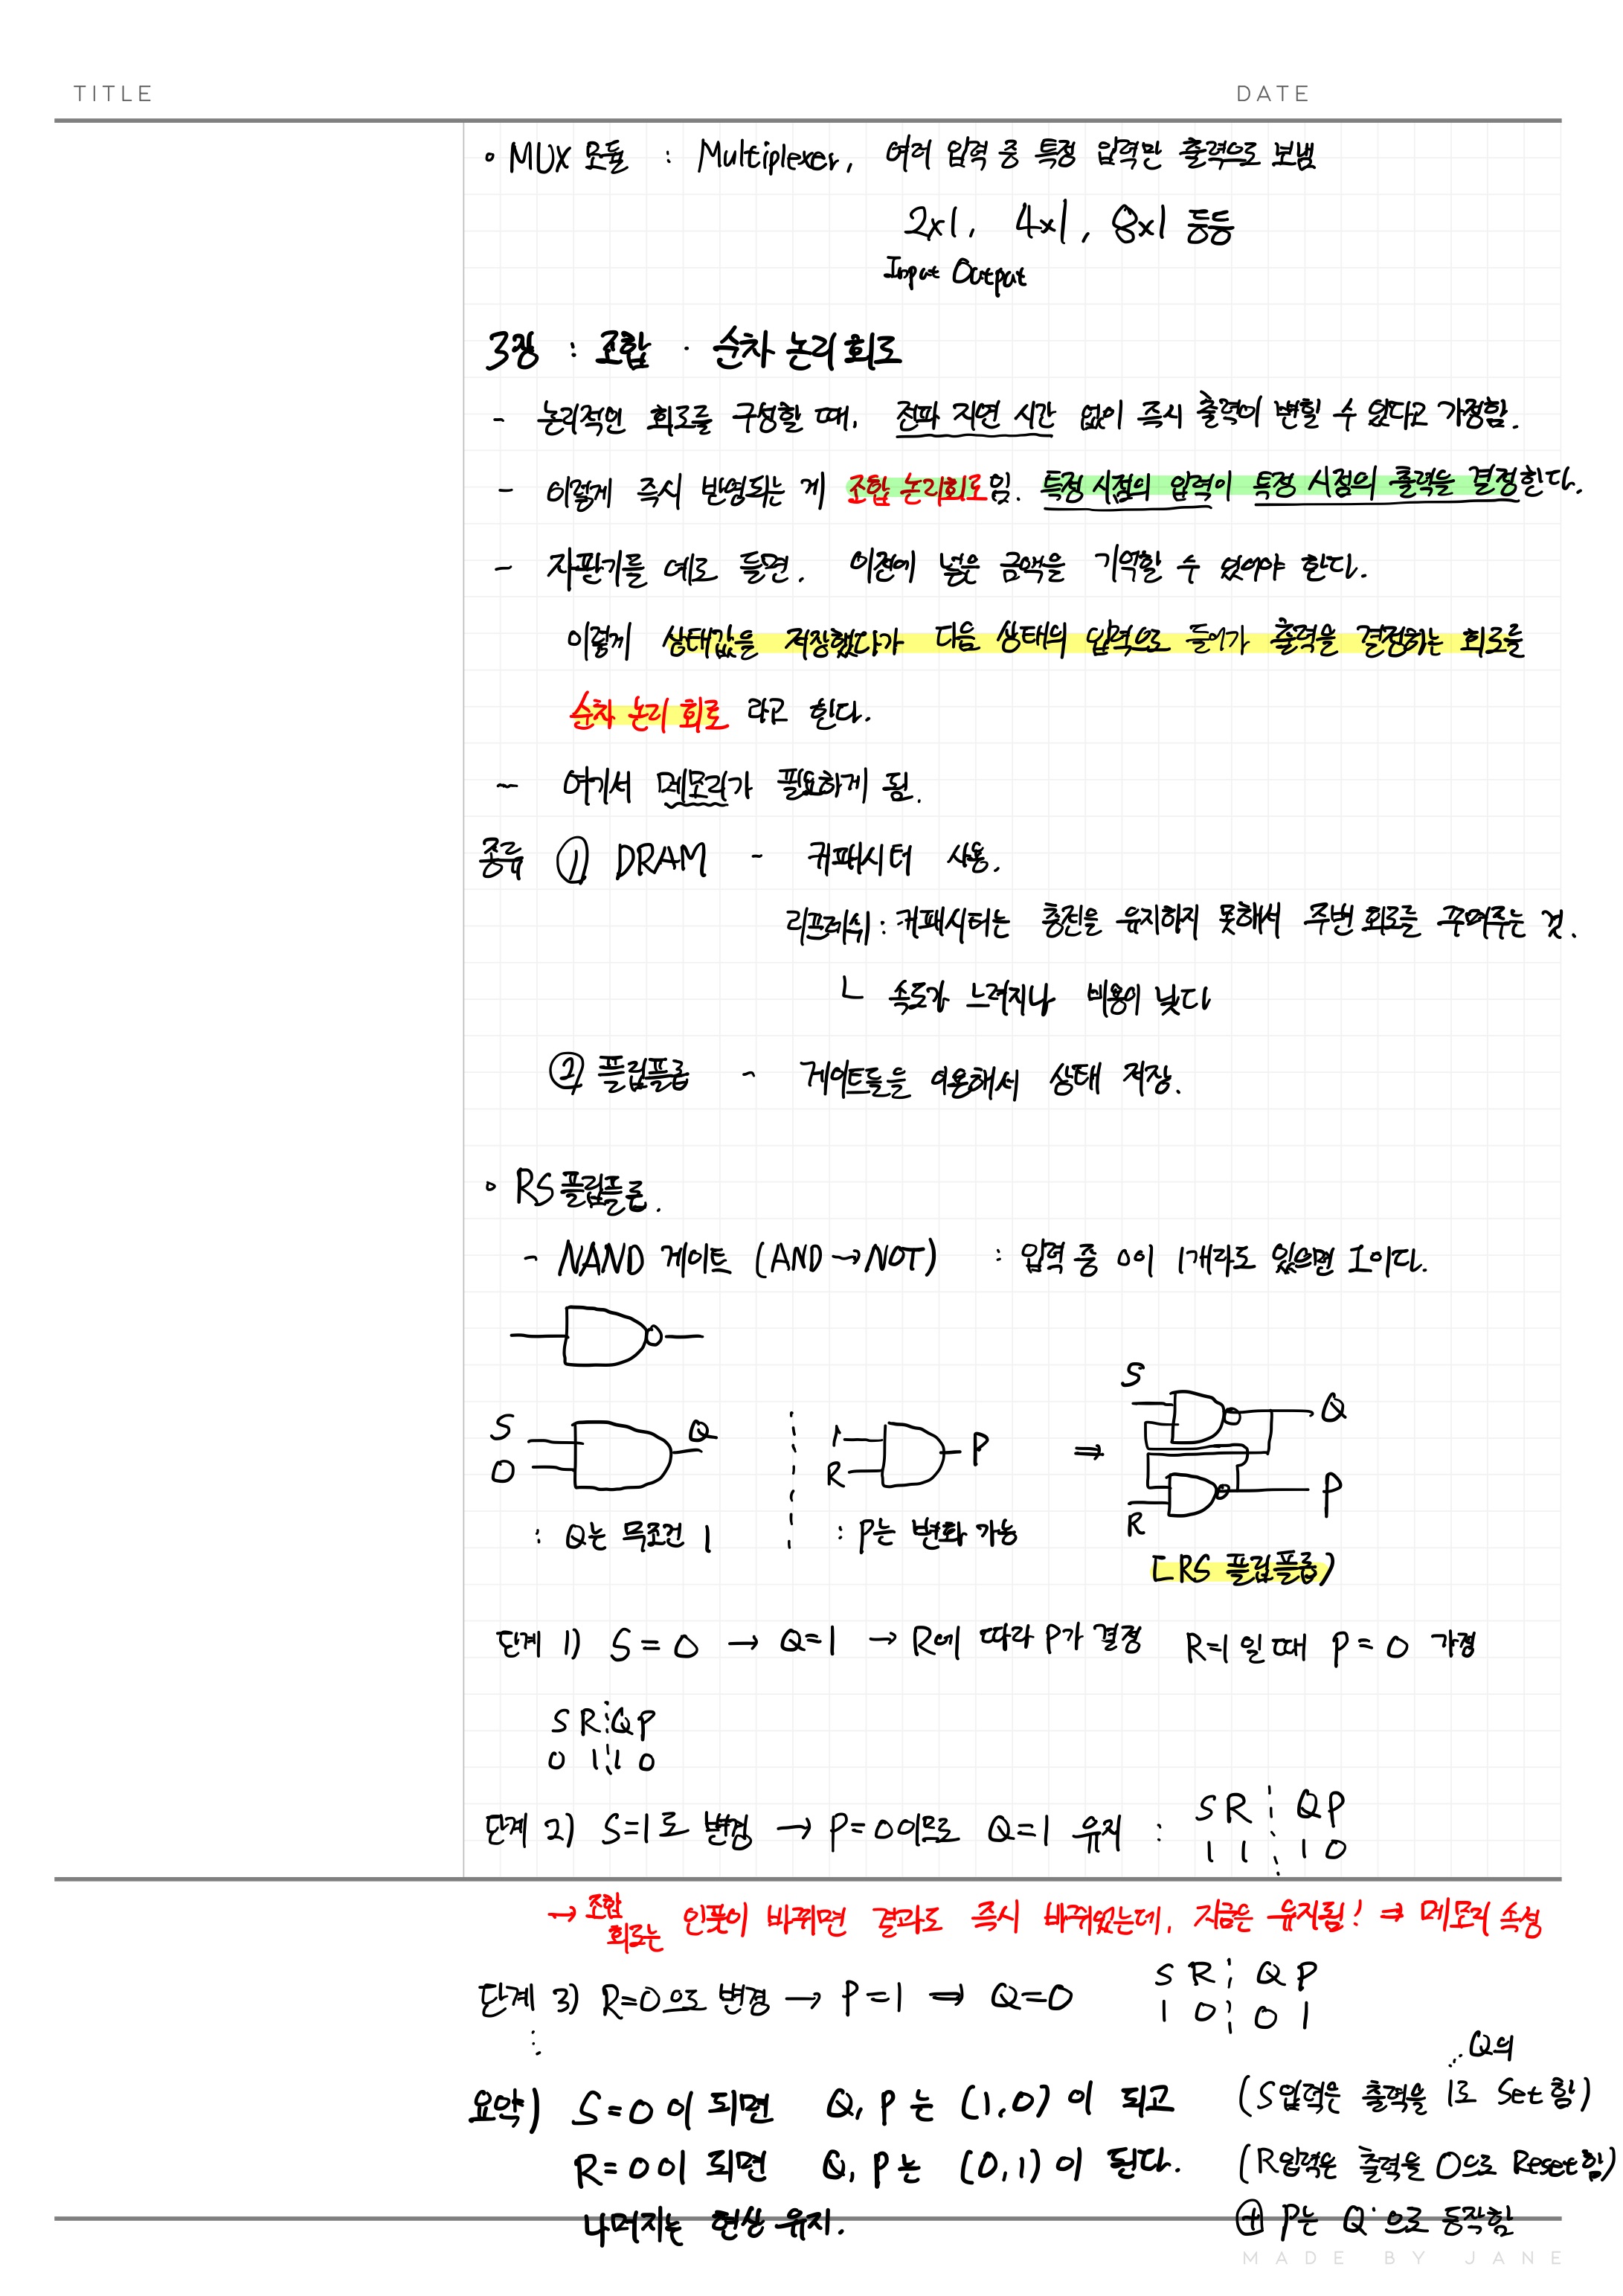 TITLE
DATE
◦ MUX 모듈 : Multiplexer, 여러 입력 중 특정 입력만 출력으로 보냄
2x1, 4x1, 8x1 등등
Input Output
3장 : 조합 · 순차 논리 회로
- 논리적인 회로를 구성할 때, 전파 지연 시간 없이 즉시 출력이 변할 수 있다고 가정함.
- 이렇게 즉시 반영되는 게 조합 논리회로임. 특정 시점의 입력이 특정 시점의 출력을 결정한다.
- 자판기를 예로 들면, 이전에 넣은 금액을 기억할 수 있어야 한다.
이렇게 상태값을 저장했다가 다음 상태의 입력으로 들어가 출력을 결정하는 회로를
순차 논리 회로 라고 한다.
- 여기서 메모리가 필요하게 됨.
종류 ① DRAM - 커패시터 사용.
리프레쉬 : 커패시터는 충전을 유지하지 못해서 주변 회로를 꾸며주는 것.
ㄴ 속도가 느려지나 비용이 낮다
② 플립플롭 - 게이트들을 이용해서 상태 저장.
◦ RS 플립플롭.
- NAND 게이트 (AND → NOT) : 입력 중 0이 1개라도 있으면 1이다.
S 0 Q
1 R P
⇒
S R Q P
: Q는 무조건 1
: P는 변화 가능
[RS 플립플롭)
단계 1) S = 0 → Q = 1 → R에 따라 P가 결정 R=1 일 때 P = 0 가정
S R Q P
0 1 1 0
단계 2) S=1로 변경 → P=0이므로 Q=1 유지 :
S R Q P
1 1 1 0
→ 조합 회로는 인풋이 바뀌면 결과도 즉시 바뀌었는데, 지금은 유지됨! ⇒ 메모리 속성
단계 3) R=0으로 변경 → P=1 ⇒ Q=0
S R Q P
1 0 0 1
Q의
요약) S=0이 되면 Q, P는 (1,0)이 되고 (S입력은 출력을 1로 Set 함)
R=0이 되면 Q, P는 (0,1)이 된다. (R입력은 출력을 0으로 Reset 함)
나머지는 현상 유지. ⊕ P는 Q'으로 동작함
MADE BY JANE